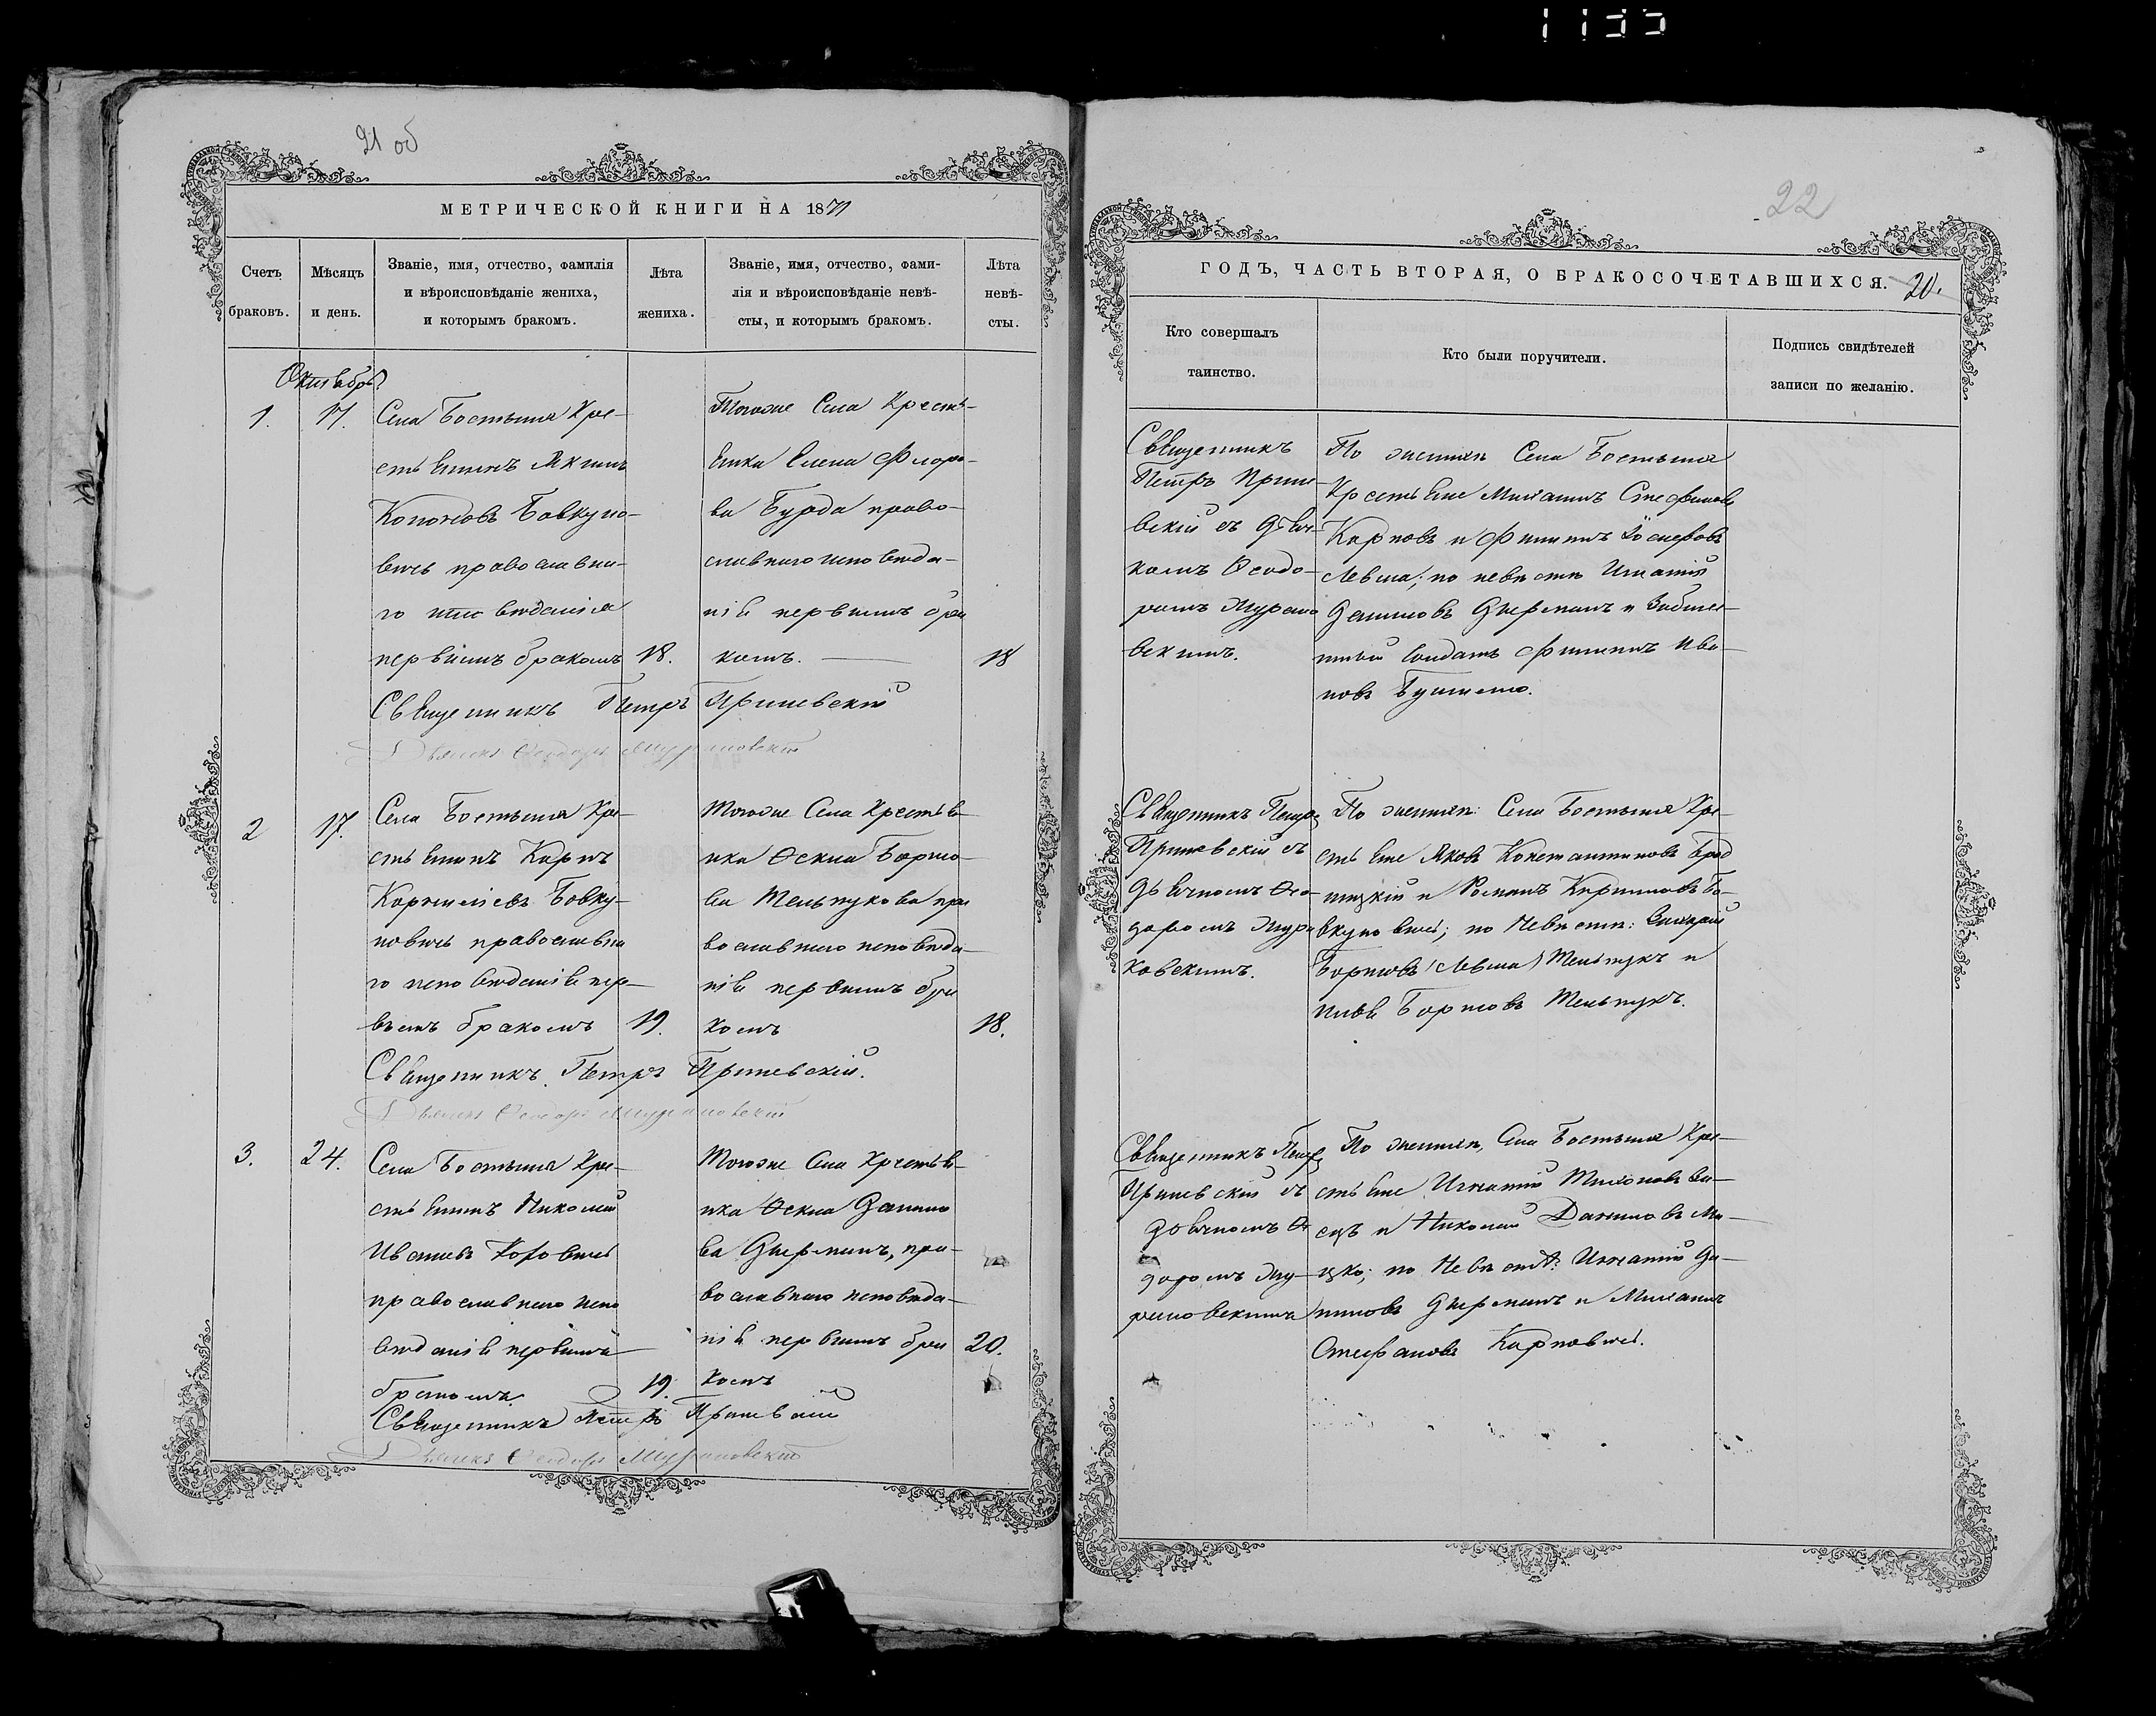 1133
21 об
МЕТРИЧЕСКОЙ КНИГИ НА 1871
Счетъ браковъ.
Мѣсяцъ и день.
Званіе, имя, отчество, фамилія
и вѣроисповѣданіе жениха,
и которымъ бракомъ.
Лѣта жениха.
Званіе, имя, отчество, фами-
лія и вѣроисповѣданіе невѣ-
сты, и которымъ бракомъ.
Лѣта невѣ-
сты.
Октябрь
1.
17.
Села Бостыня Кре-
стьянинъ Якимъ
Кононовъ Бовкуно-
вичь православна-
го исповѣданія
первымъ бракомъ
18.
Тогоже Села Кресть-
янка Елена Флоро-
ва Бурда право-
славнаго исповѣда-
нія первымъ бра
комъ.
18
Священникъ Петръ Яриневскій
Дьячекъ Ѳеодоръ Журановскій
2
17.
Села Бостыня Кре-
стьянинъ Карпъ
Корнилievъ Бовку-
новичь православна
го исповѣданія пер-
вымъ бракомъ
19.
Тогоже Села Крестья-
нка Ѳекла Борисо-
ва Мельнукова пра
вославнаго исповѣда-
нія первымъ бра
комъ
18.
Священникъ Петръ Яриневскій.
Дьячекъ Ѳеодоръ Журановскій
3.
24.
Села Бостыня Кре-
стьянинъ Николай
Ивановъ
православнаго испо
вѣданія первымъ
бракомъ
19.
Тогоже Села Крестья-
нка Ѳекла Данило
ва пра-
вославнаго исповѣда-
нія первымъ бра
комъ
20.
Священникъ Петръ Яриневскій
Дьячекъ Ѳеодоръ Журановскій
22
ГОДЪ, ЧАСТЬ ВТОРАЯ, О БРАКОСОЧЕТАВШИХСЯ.
20.
Кто совершалъ
таинство.
Кто были поручители.
Подпись свидѣтелей
записи по желанію.
Священникъ
ПетръЯрине-
вскій съ Дьяч-
комъ Ѳеодо-
ромъ Журано
вскимъ.
По женихѣ Села Бостыня
Крестьяне Михаилъ Стефановъ
Карповъ и Филиппъ Іосифовъ
Левша; по невѣстѣ Игнатій
Даниловъ и
Солдатъ Филиппъ Ива-
новъ
Священникъ Петръ
Яриневскій съ
Дьячкомъ Ѳео-
доромъ Жура
новскимъ.
По женихѣ: Села Бостыня Кре-
стьяне Яковъ Константиновъ
и Романъ Бо-
вкуновичь; по Невѣстѣ: Захарій
Борисовъ (Левша) Мельнукъ и
Борисовъ Мельнукъ.
Священникъ Петръ
Яриневскій съ
дьячкомъ Ѳе
доромъ Жу-
рановскимъ
По женихѣ, Села Бостыня Кре-
стьяне Игнатій Тихоновъ
и Николай Даниловъ
по Невѣстѣ: Игнатій Да-
ниловъ и Михаилъ
Стефановъ Карповичь.